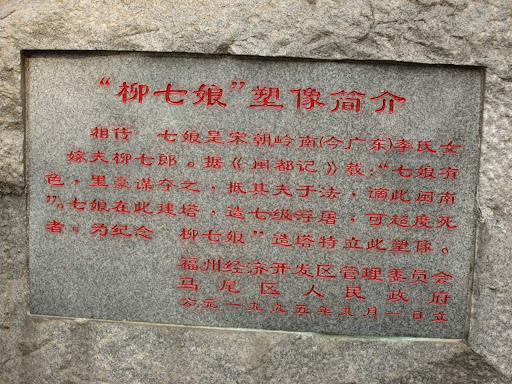 “柳七娘”塑像简介
相传 七娘是宋朝岭南(今广东)李氏女
嫁夫柳七郎。据《闽都记》载:“七娘有
色，里豪谋夺之，抵其夫于法，谪此闽南
”。七娘在此建塔，造七级浮屠，可超度死
者。为纪念 柳七娘”造塔特立此塑像。
福州经济开发区管理委员会
马尾区人民政府
公元一九九五年九月一日立